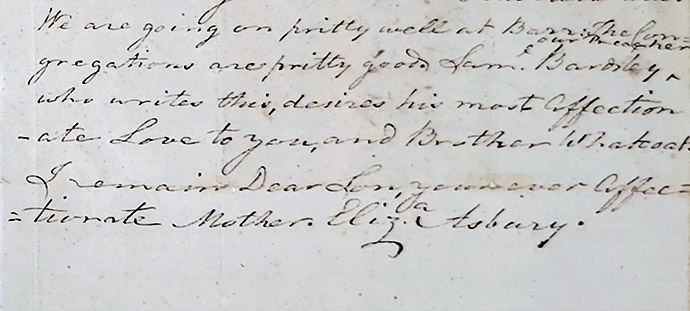 We are going on pritty well at Barr. The Con=
gregations are pritty good. Sam.l Bardsley, our Preacher
who writes this, desires his most Affection
-ate Love to you, and Brother Whatcoat.
I remain Dear Son, your ever Affec=
=tionate Mother. Eliz.a Asbury.